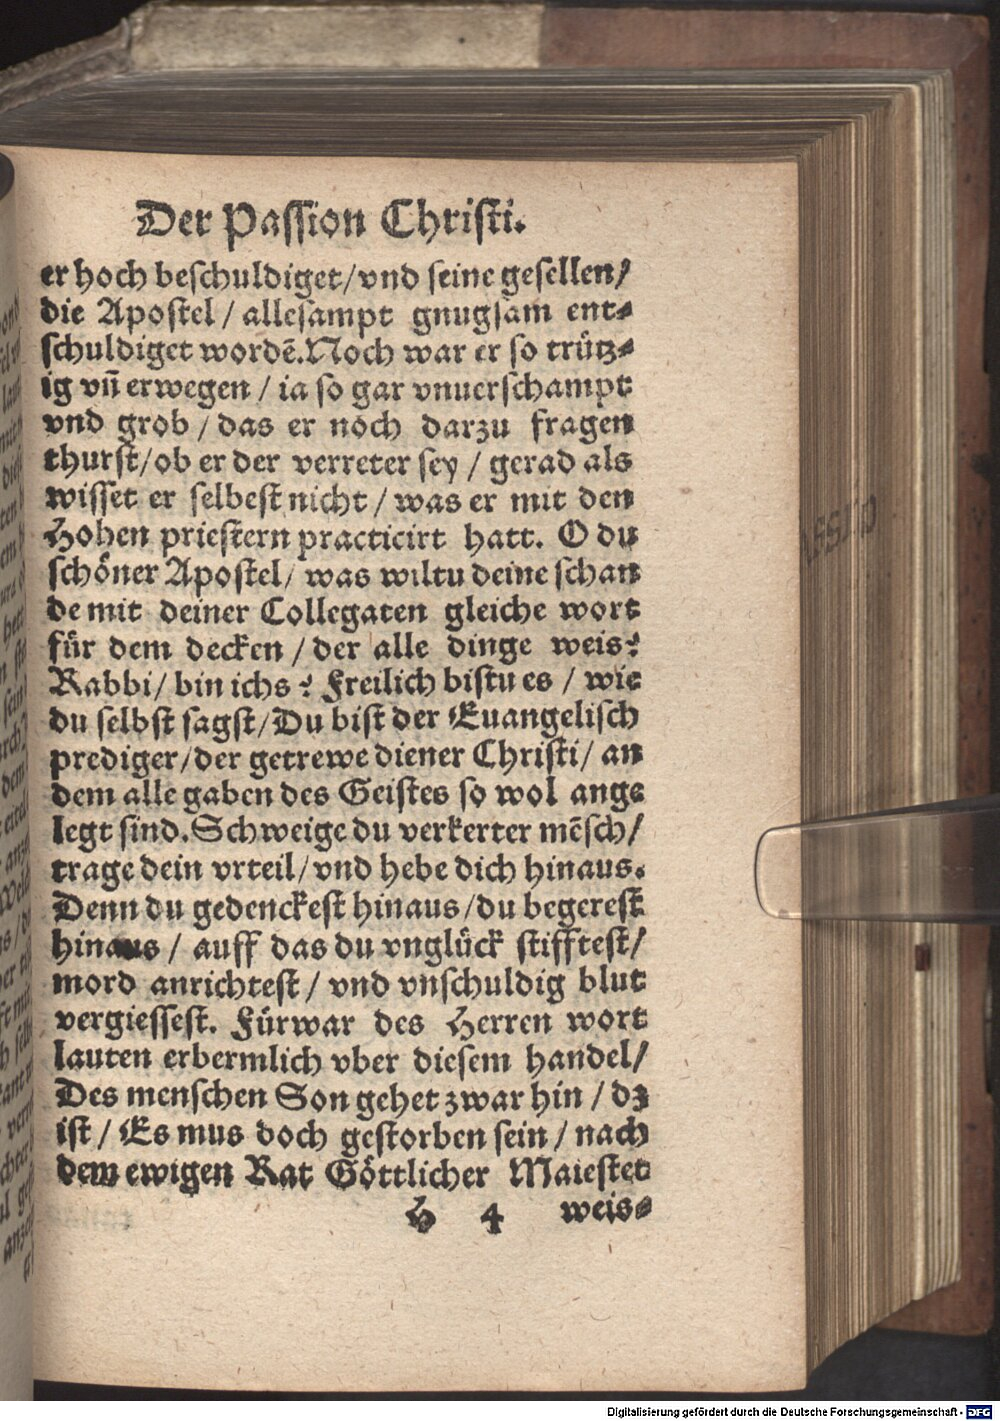 Der Passion Christi.
er hoch beschuldiget/vnd seine gesellen/
die Apostel/ allesampt gnugsam ent⸗
schuldiget wordẽ.Noch war er so trütz⸗
ig vñ erwegen / ia so gar vnuerschampt
vnd grob / das er noch darzu fragen
thurst/ob er der verreter sey / gerad als
wisset er selbest nicht / was er mit den
Hohen priestern practicirt hatt. O du
schöner Apostel/ was wiltu deine schan
de mit deiner Collegaten gleiche wort
für dem decken / der alle dinge weis?
Rabbi/ bin ichs? Freilich bistu es / wie
du selbst sagst/Du bist der Euangelisch
prediger/der getrewe diener Christi/ an
dem alle gaben des Geistes so wol ange
legt sind.Schweige du verkerter mẽsch/
trage dein vrteil/vnd hebe dich hinaus.
Denn du gedenckest hinaus/du begerest
hinaus / auff das du vnglück stifftest/
mord anrichtest / vnd vnschuldig blut
vergiessest. Fürwar des Herren wort
lauten erbermlich vber diesem handel/
Des menschen Son gehet zwar hin / dz
ist / Es mus doch gestorben sein / nach
dem ewigen Rat Göttlicher Maiestet
H 4 weis⸗
Digitalisierung gefördert durch die Deutsche Forschungsgemeinschaft - DFG